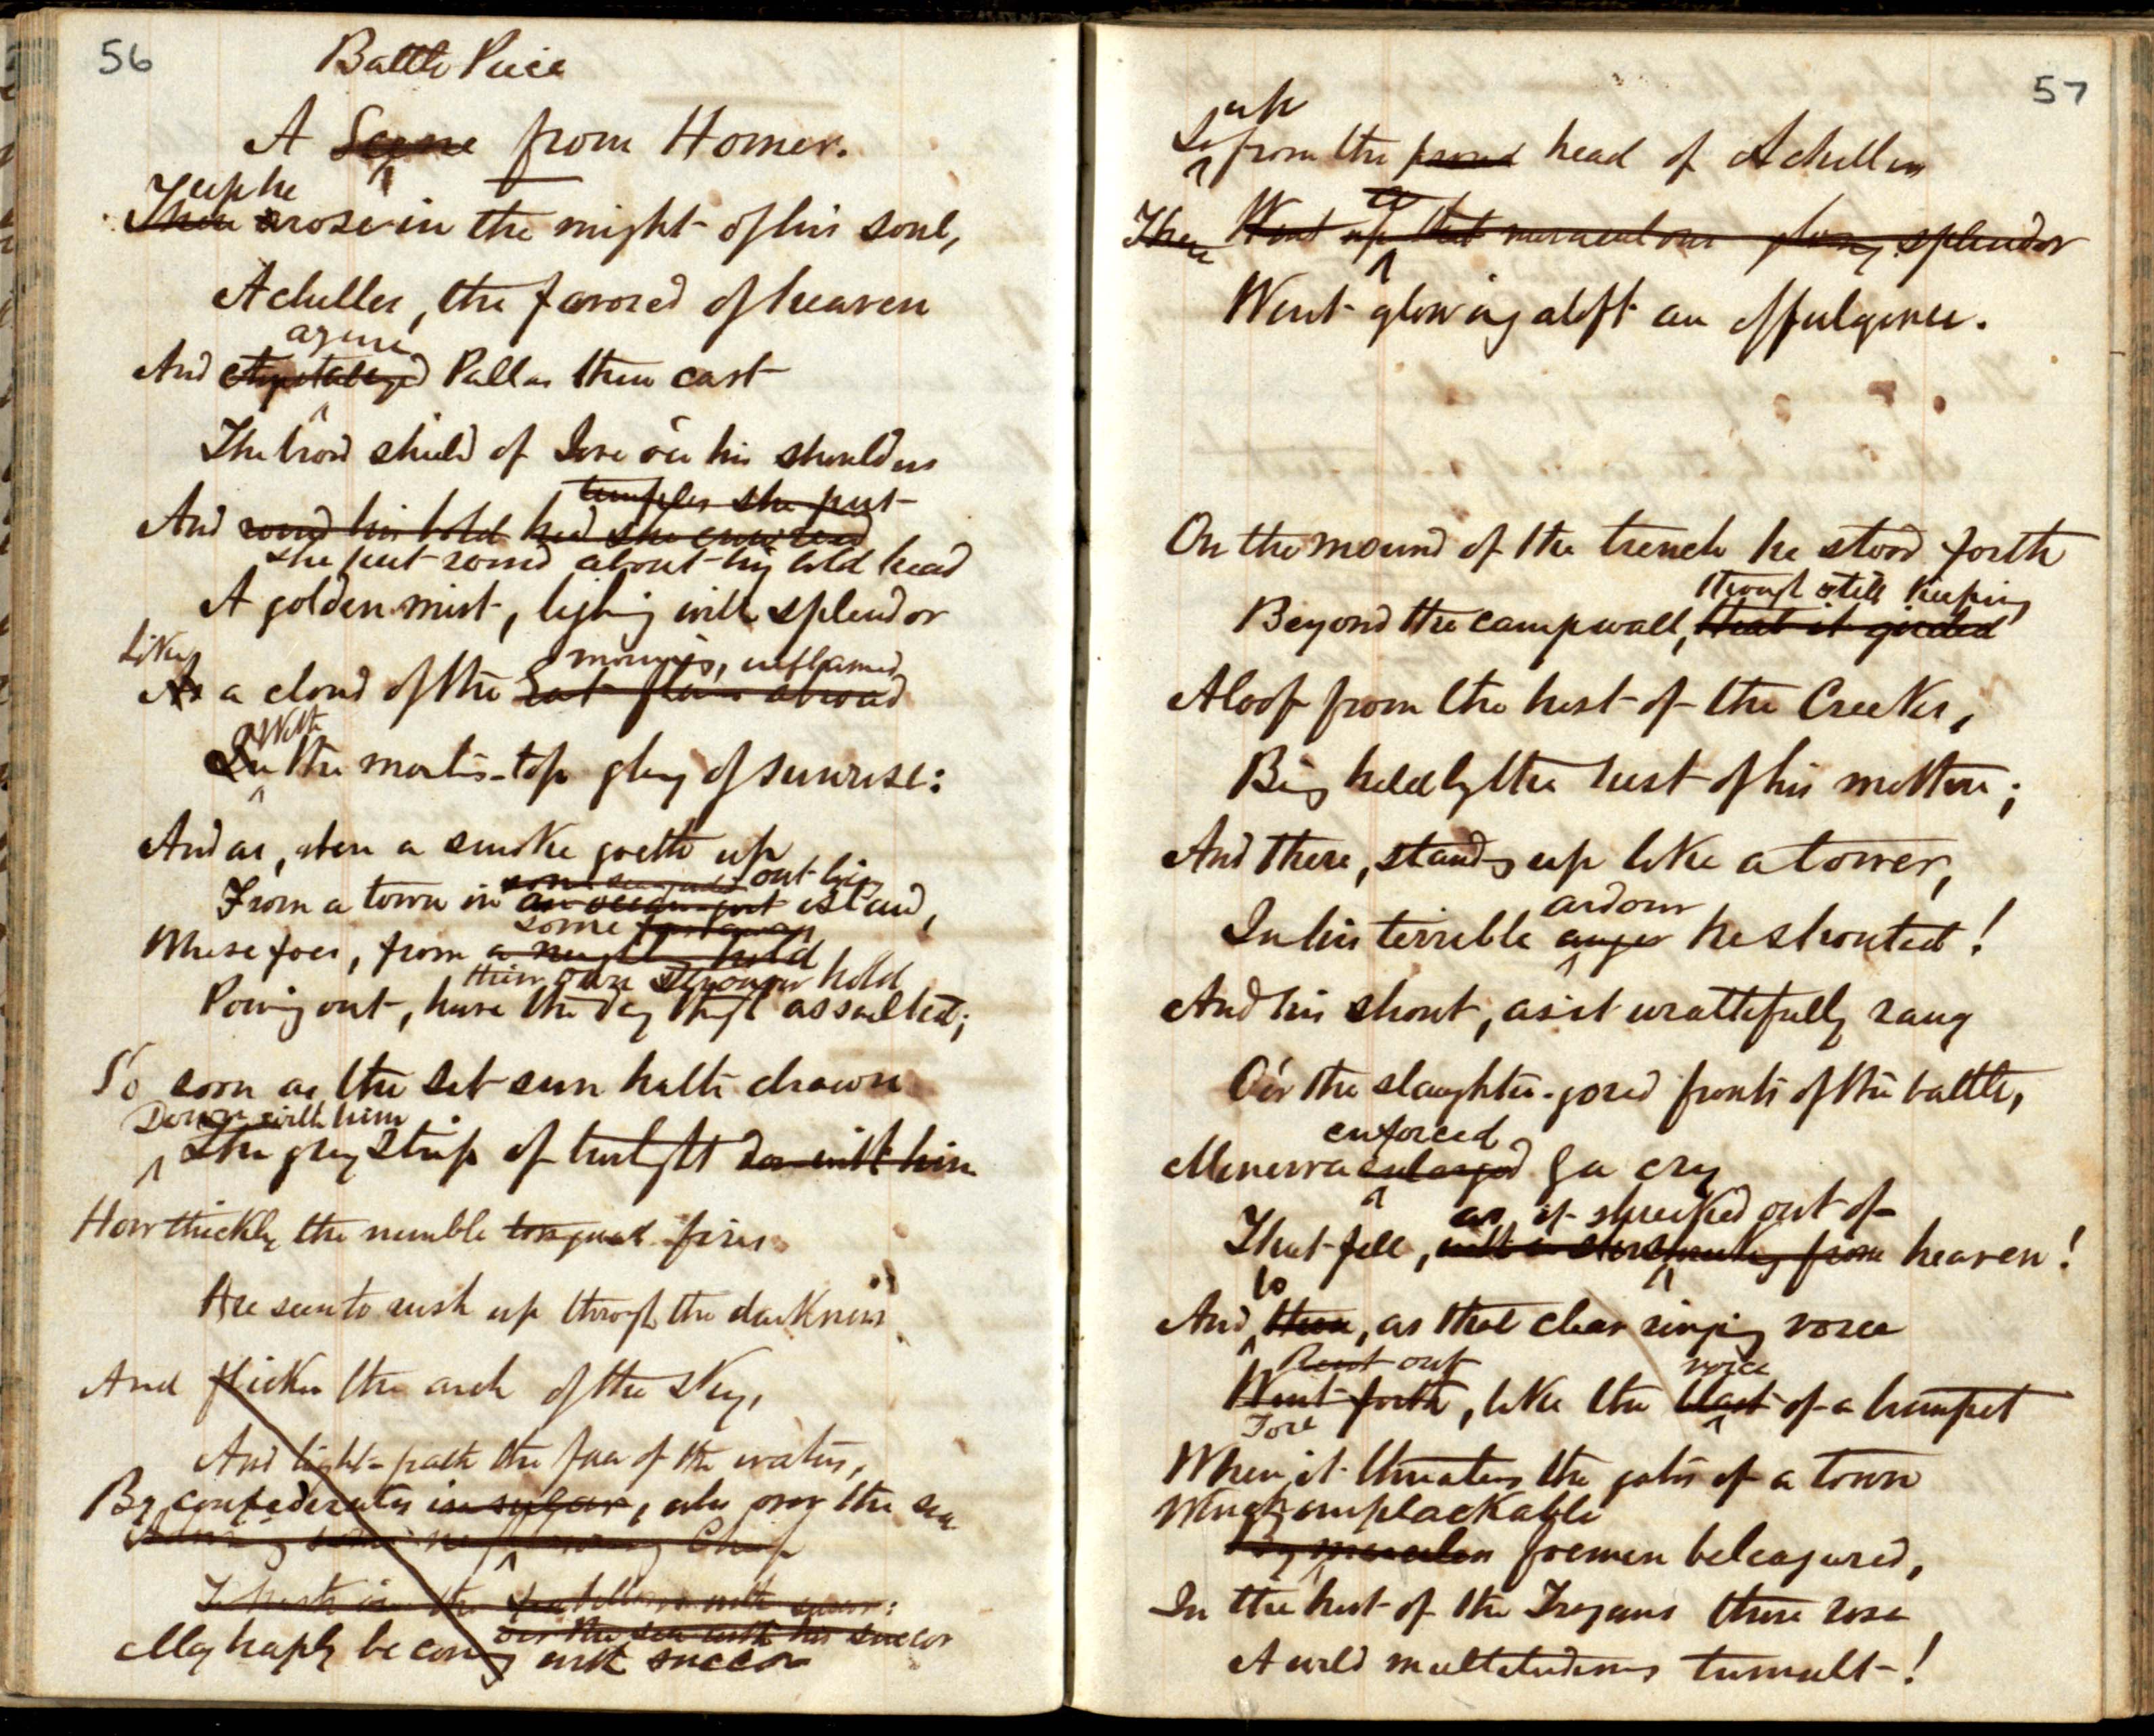 56
Battle Piece
A Scene from Homer.
up he
Then arose in the might of his soul,
Achilles, the favored of heaven
azure
And Pallas then cast
The broad shield of Jove o'er his shoulders
temples she put
And round his bold head she enwreathed
she put round about his bold head
A golden mist, lighting with splendor
Like
As a cloud of the East flam abroad
morning, upflamed
With
In the mountain-top glory of sunrise:
And as, when a smoke goeth up
out lying
From a town in an ocean-girt island,
some
Whose foes, from a neighboring hold
their own stronger hold
Pouring out, have the day through assaulted;
So soon as the set sun hath drawn
Down with him
The grey strip of twilight down with him
How thickly the nimble tongued fires
Are seen to rush up through the darkness
And flicker the arch of the sky,
And light-path the face of the waters,
By confederates, who over the sea
o'er the sea with his succor
May haply be coming with succor
57
up
So from the proud head of Achilles
There Went up that miraculous glory splendor
Went glowing aloft an effulgence.
On the mound of the trench he stood forth
though still keeping
Beyond the camp wall, that it girded
Aloof from the host of the Greeks,
Big held by the hest of his mother;
And there, standing up like a tower,
ardour
In his terrible anger he shouted!
And his shout, as it wrathfully rang
O'er the slaughter-gored fronts of the battle,
enforced
Minerva enlarged by a cry
as if shrieked out of
That fell, from heaven!
lo
And then, as that clear ringing voice
Rent out voice
Went forth, like the blast of a trumpet
Tore
When it threatens the gates of a town
Which implackable
By merciless foemen beleagured,
In the host of the Trojans there rose
A wild multitudinous tumult!